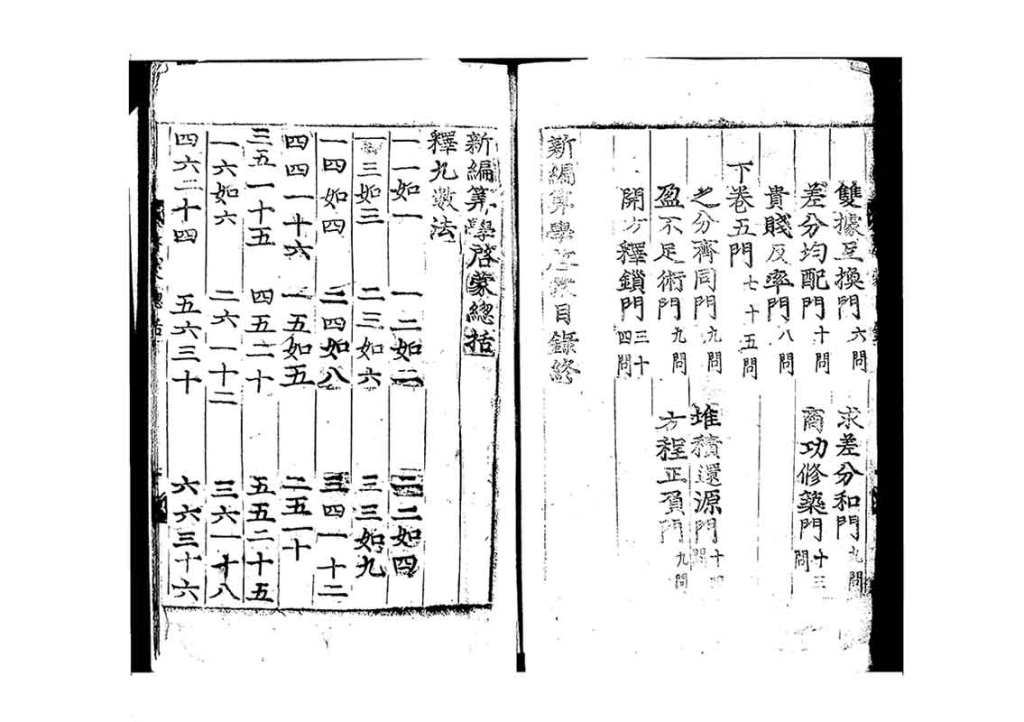 雙據互換門 六問 求差分和門 九問
差分均配門 十問 商功修築門 十三問
貴賤反率門 八問
下卷五門 七十五問
之分齊同門 九問 堆積還源門 十四問
盈不足術門 九問 方程正負門 九問
開方釋鎖門 三十四問
新編算學啓蒙目錄終
新編算學啓蒙總括
釋九數法
一一如一 一二如二 二二如四
一三如三 二三如六 三三如九
一四如四 二四如八 三四一十二
四四一十六 一五如五 二五一十
三五一十五 四五二十 五五二十五
一六如六 二六一十二 三六一十八
四六二十四 五六三十 六六三十六